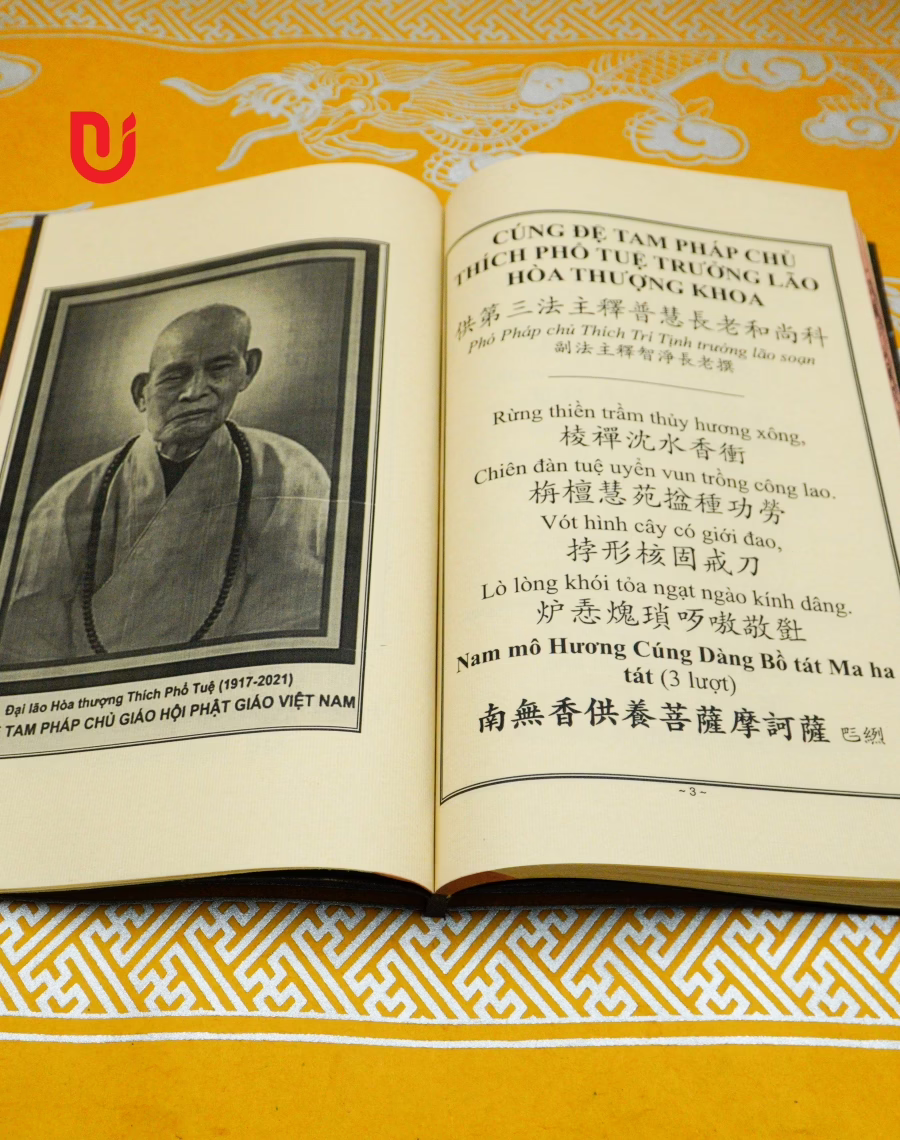 Đại lão Hòa thượng Thích Phổ Tuệ (1917-2021)
TAM PHÁP CHỦ GIÁO HỘI PHẬT GIÁO VIỆT NAM
CÚNG ĐỆ TAM PHÁP CHỦ
THÍCH PHỔ TUỆ TRƯỞNG LÃO
HÒA THƯỢNG KHOA
供第三法主釋普慧長老和尚科
Phó Pháp chủ Thích Trí Tịnh trưởng lão soạn
副法主釋智淨長老撰
Rừng thiền trầm thủy hương xông,
棱禪沈水香衝
Chiên đàn tuệ uyển vun trồng công lao.
栴檀慧苑搵種功勞
Vót hình cây có giới đao,
挬形核固戒刀
Lò lòng khói tỏa ngạt ngào kính dâng.
炉㤝煙瑣呁嗷敬
Nam mô Hương Cúng Dàng Bồ tát Ma ha
tát (3 lượt)
南無香供養菩薩摩訶薩
~ 3 ~